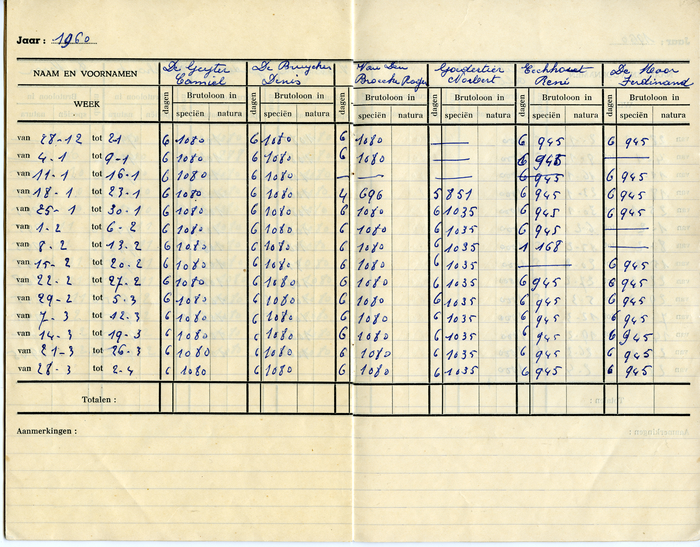 Jaar : 1960
NAAM EN VOORNAMEN De Geyter Camiel De Bruycker Denis Van Den Broecke Roger Norbert Eeckhout René De Moor Ferdinand
WEEK dagen Brutoloon in speciën natura dagen Brutoloon in speciën natura Brutoloon in speciën natura dagen Brutoloon in speciën natura dagen Brutoloon in speciën natura dagen Brutoloon in speciën natura
van 28-12 tot 2-1 6 1080 6 1080 6 1080 — 6 945 6 945
van 4-1 tot 9-1 6 1080 6 1080 6 1080 — 6 945 —
van 11-1 tot 16-1 6 1080 6 1080 — — — 6 945 6 945
van 18-1 tot 23-1 6 1080 6 1080 4 696 5 851 6 945 6 945
van 25-1 tot 30-1 6 1080 6 1080 6 1080 6 1035 6 945 6 945
van 1-2 tot 6-2 6 1080 6 1080 6 1080 6 1035 6 945 —
van 8-2 tot 13-2 6 1080 6 1080 6 1080 6 1035 1 168 —
van 15-2 tot 20-2 6 1080 6 1080 6 1080 6 1035 — 6 945
van 22-2 tot 27-2 6 1080 6 1080 6 1080 6 1035 6 945 6 945
van 29-2 tot 5-3 6 1080 6 1080 6 1080 6 1035 6 945 6 945
van 7-3 tot 12-3 6 1080 6 1080 6 1080 6 1035 6 945 6 945
van 14-3 tot 19-3 6 1080 6 1080 6 1080 6 1035 6 945 6 945
van 21-3 tot 26-3 6 1080 6 1080 6 1080 6 1035 6 945 6 945
van 28-3 tot 2-4 6 1080 6 1080 6 1080 6 1035 6 945 6 945
Totalen :
Aanmerkingen :